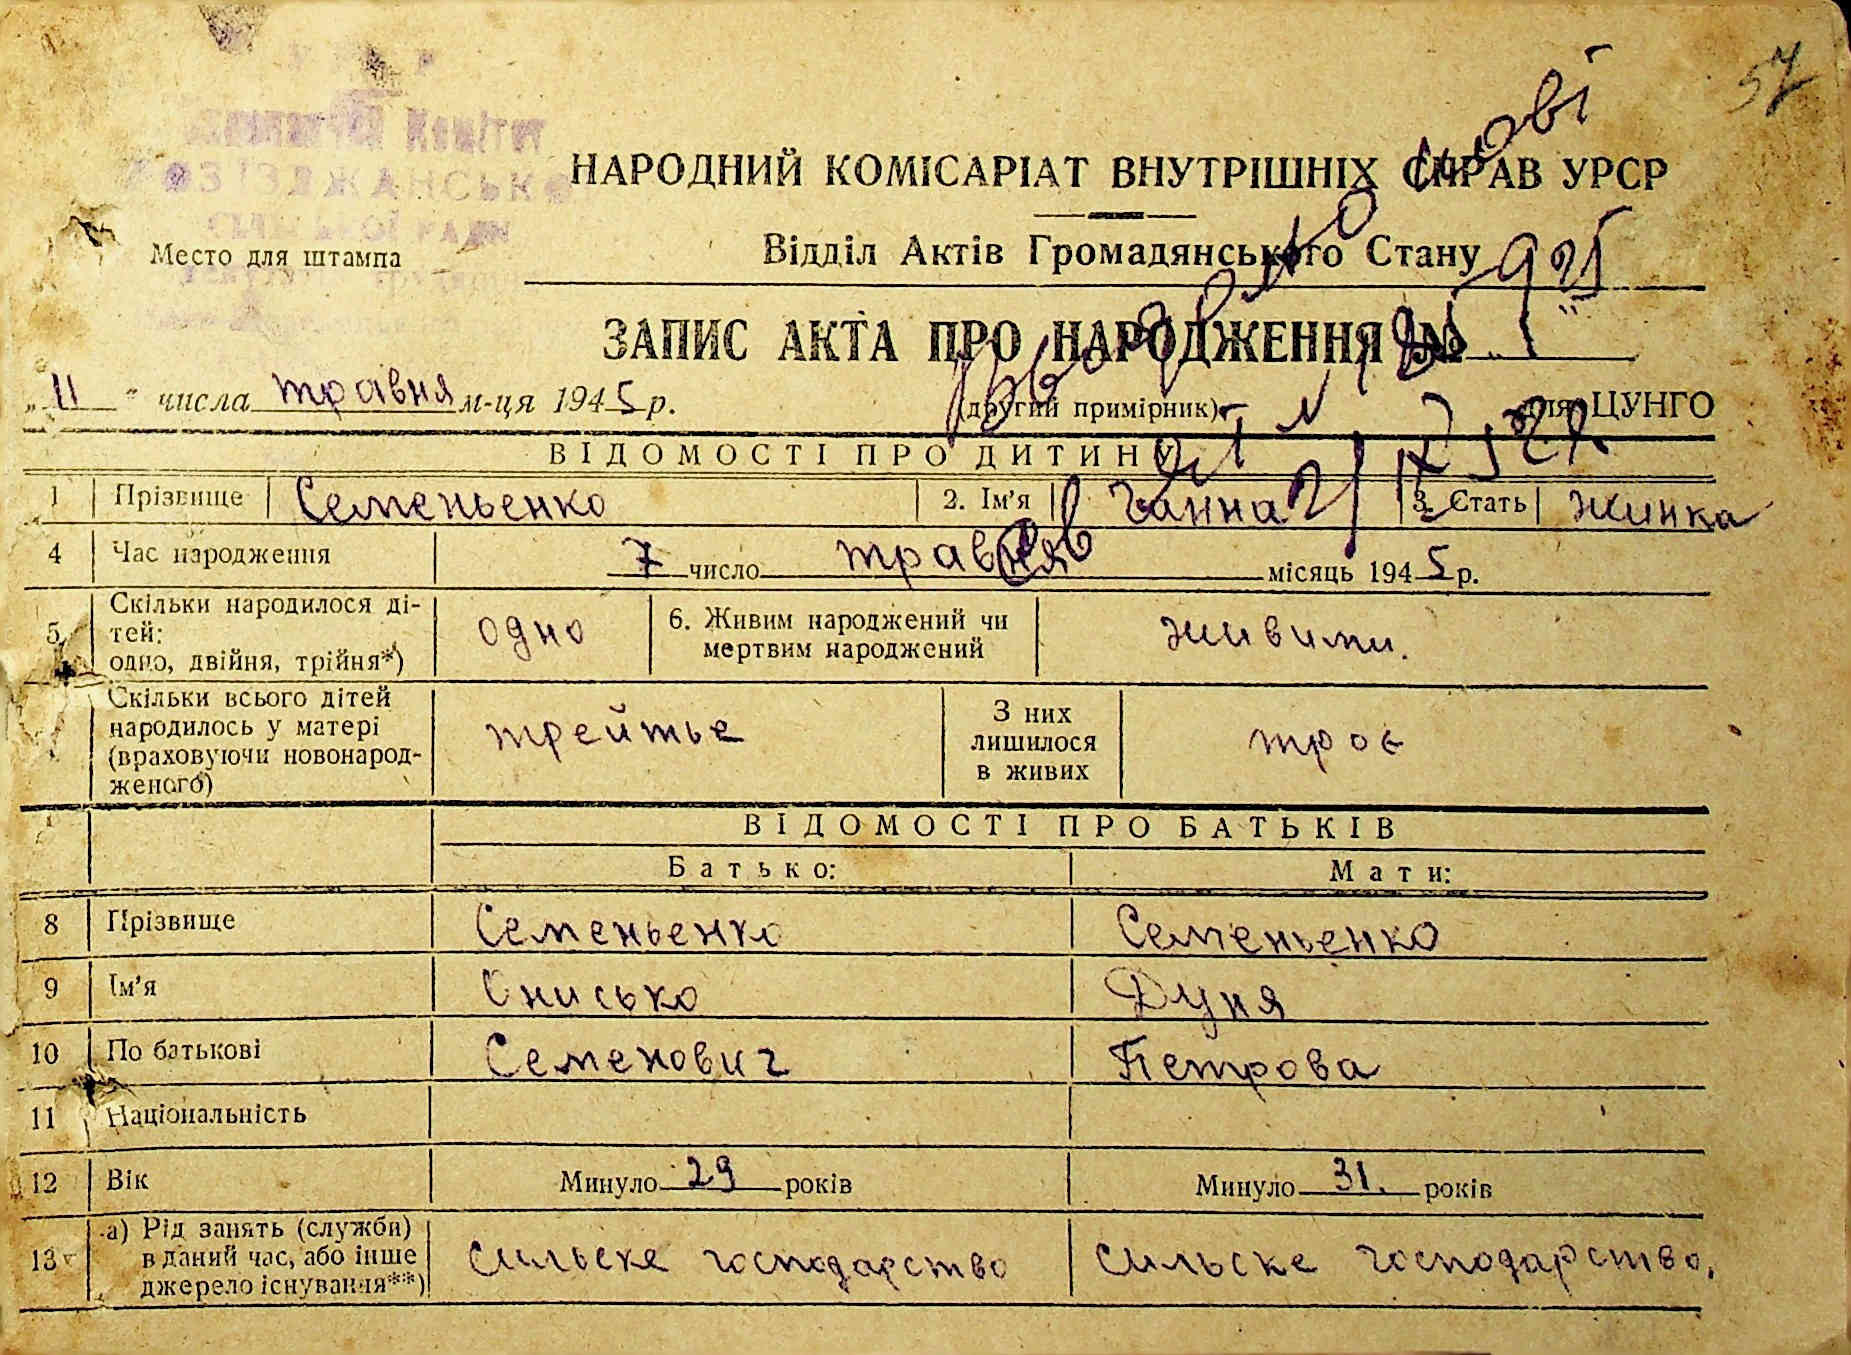 57
НАРОДНИЙ КОМІСАРІАТ ВНУТРІШНІХ СПРАВ УРСР
Место для штампа
Відділ Актів Громадянського Стану
ЗАПИС АКТА ПРО НАРОДЖЕННЯ №
„11“ числа травня м-ця 1945 р. (другий примірник) для ЦУНГО
ВІДОМОСТІ ПРО ДИТИНУ
1 Прізвище Семеньенко 2. Ім'я Ганна 3. Стать жинка
4 Час народження 7 число травня місяць 1945 р.
5 Скільки народилося ді-
тей:
одно, двійня, трійня*) одно 6. Живим народжений чи
мертвим народжений живими.
Скільки всього дітей
народилось у матері
(враховуючи новонарод-
женого) трейтье З них
лишилося
в живих троє
ВІДОМОСТІ ПРО БАТЬКІВ
Батько: Мати:
8 Прізвище Семеньенко Семеньенко
9 Ім'я Онисько Дуня
10 По батькові Семенович Петрова
11 Національність
12 Вік Минуло 29 років Минуло 31. років
13 а) Рід занять (служби)
в даний час, або інше
джерело існування**) сильске господарство сильске господарство,